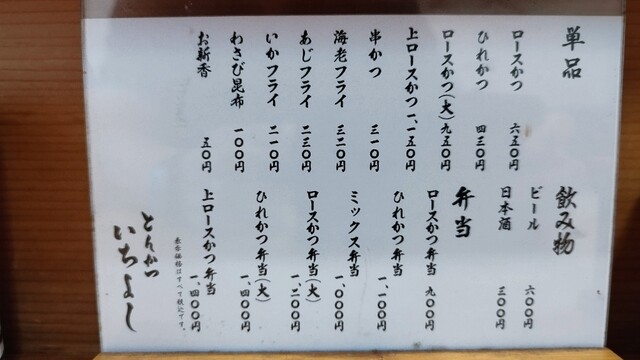 単品
ロースかつ 六五〇円
ひれかつ 四三〇円
ロースかつ(大) 九五〇円
上ロースかつ 一、一五〇円
串かつ 三一〇円
海老フライ 三二〇円
あじフライ 二三〇円
いかフライ 二一〇円
わさび昆布 一〇〇円
お新香 五〇円
飲み物
ビール 六〇〇円
日本酒 三〇〇円
弁当
ロースかつ弁当 九〇〇円
ひれかつ弁当 一、一〇〇円
ミックス弁当 一、〇〇〇円
ロースかつ弁当(大) 一、二〇〇円
ひれかつ弁当(大) 一、四〇〇円
上ロースかつ弁当 一、四〇〇円
表示価格はすべて税込です。
とんかつ
いちよし